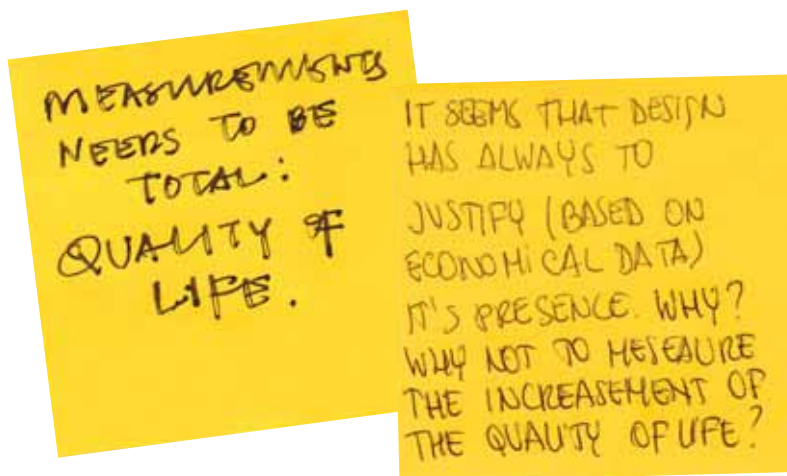 MEASUREMENTS
NEEDS TO BE
TOTAL:
QUALITY OF
LIFE.
IT SEEMS THAT DESIGN
HAS ALWAYS TO
JUSTIFY (BASED ON
ECONOMICAL DATA)
IT'S PRESENCE. WHY?
WHY NOT TO MESEAURE
THE INCREASEMENT OF
THE QUALITY OF LIFE?